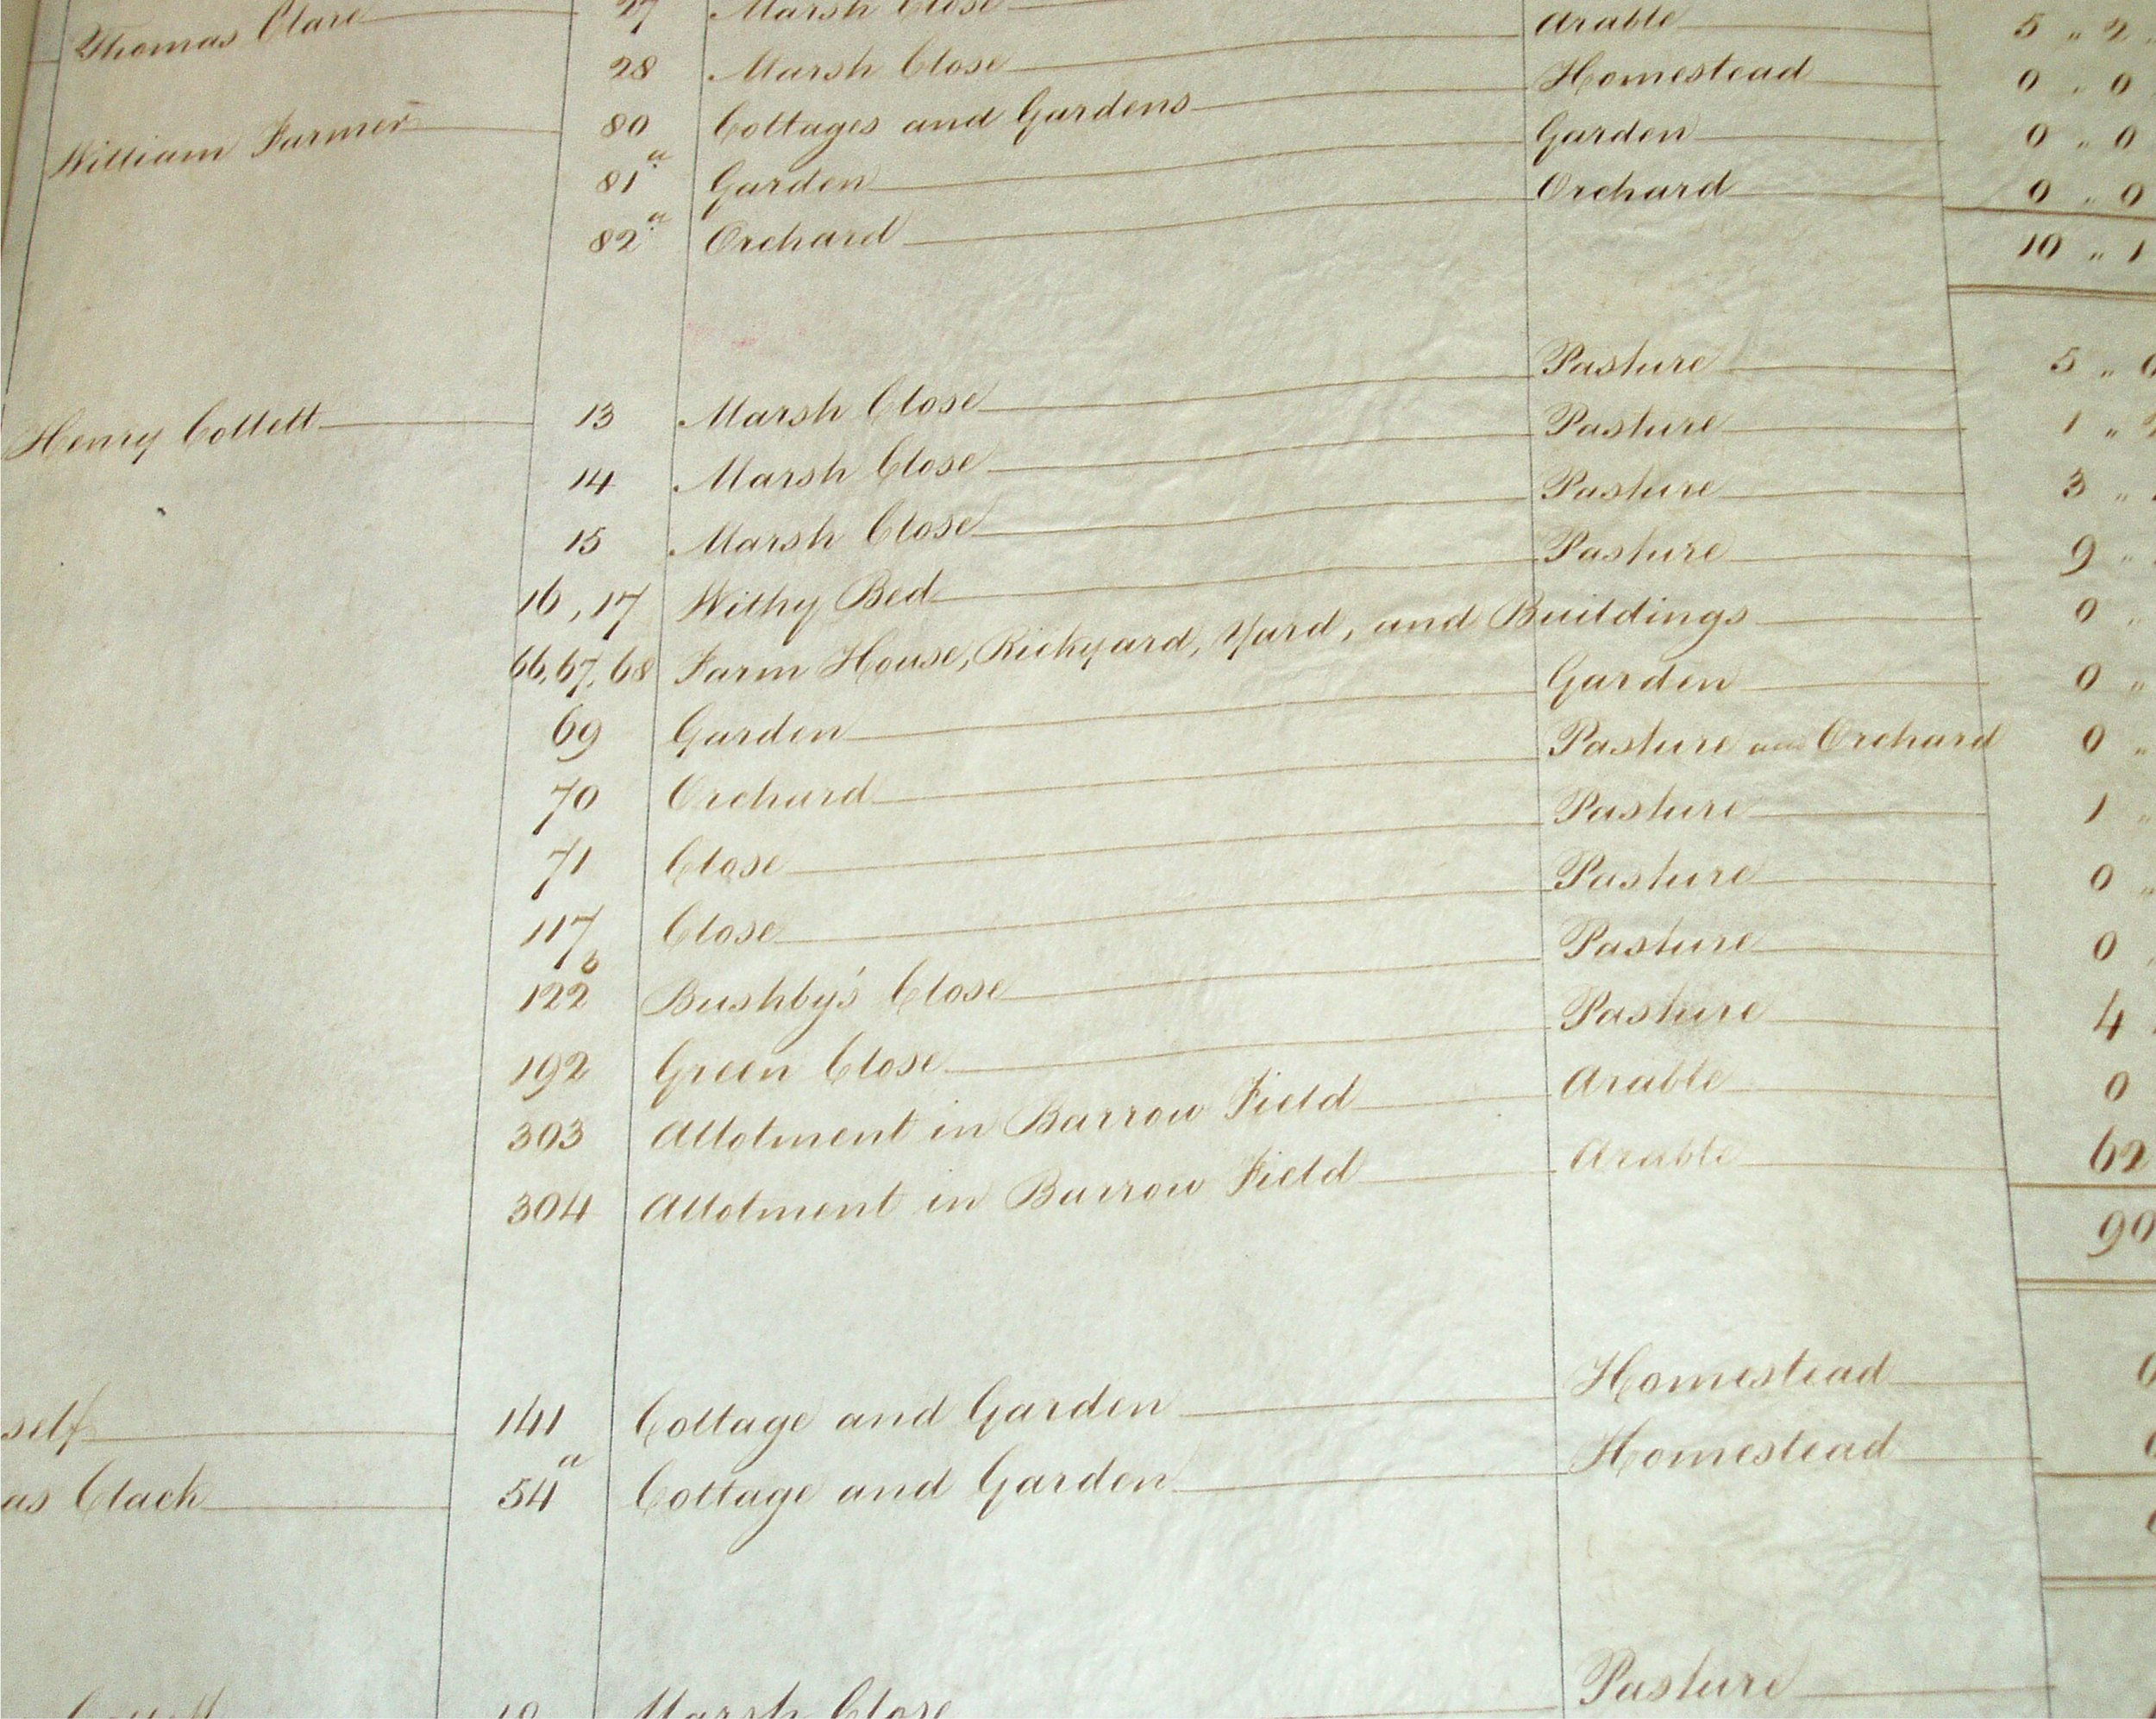 Thomas Clare 27 Marsh Close
28 Marsh Close Arable 5 " 2
William Farmer 80 Cottages and Gardens Homestead 0 " 0
81a Garden Garden 0 " 0
82a Orchard Orchard 0 " 0
10 " 1
Henry Collett 13 Marsh Close Pasture 5 " 0
14 Marsh Close Pasture 1 "
15 Marsh Close Pasture 3 "
16, 17 Withy Bed Pasture 9 "
66, 67, 68 Farm House, Rickyard, Yard, and Buildings 0 "
69 Garden Garden 0 "
70 Orchard Pasture and Orchard 0 "
71 Close Pasture 1 "
117 Close Pasture 0 "
122b Bushby's Close Pasture 0
192 Green Close Pasture 4
303 Allotment in Barrow Field Arable 0
304 Allotment in Barrow Field Arable 62
90
self 141 Cottage and Garden Homestead
as Clack 54a Cottage and Garden Homestead
Marsh Close Pasture